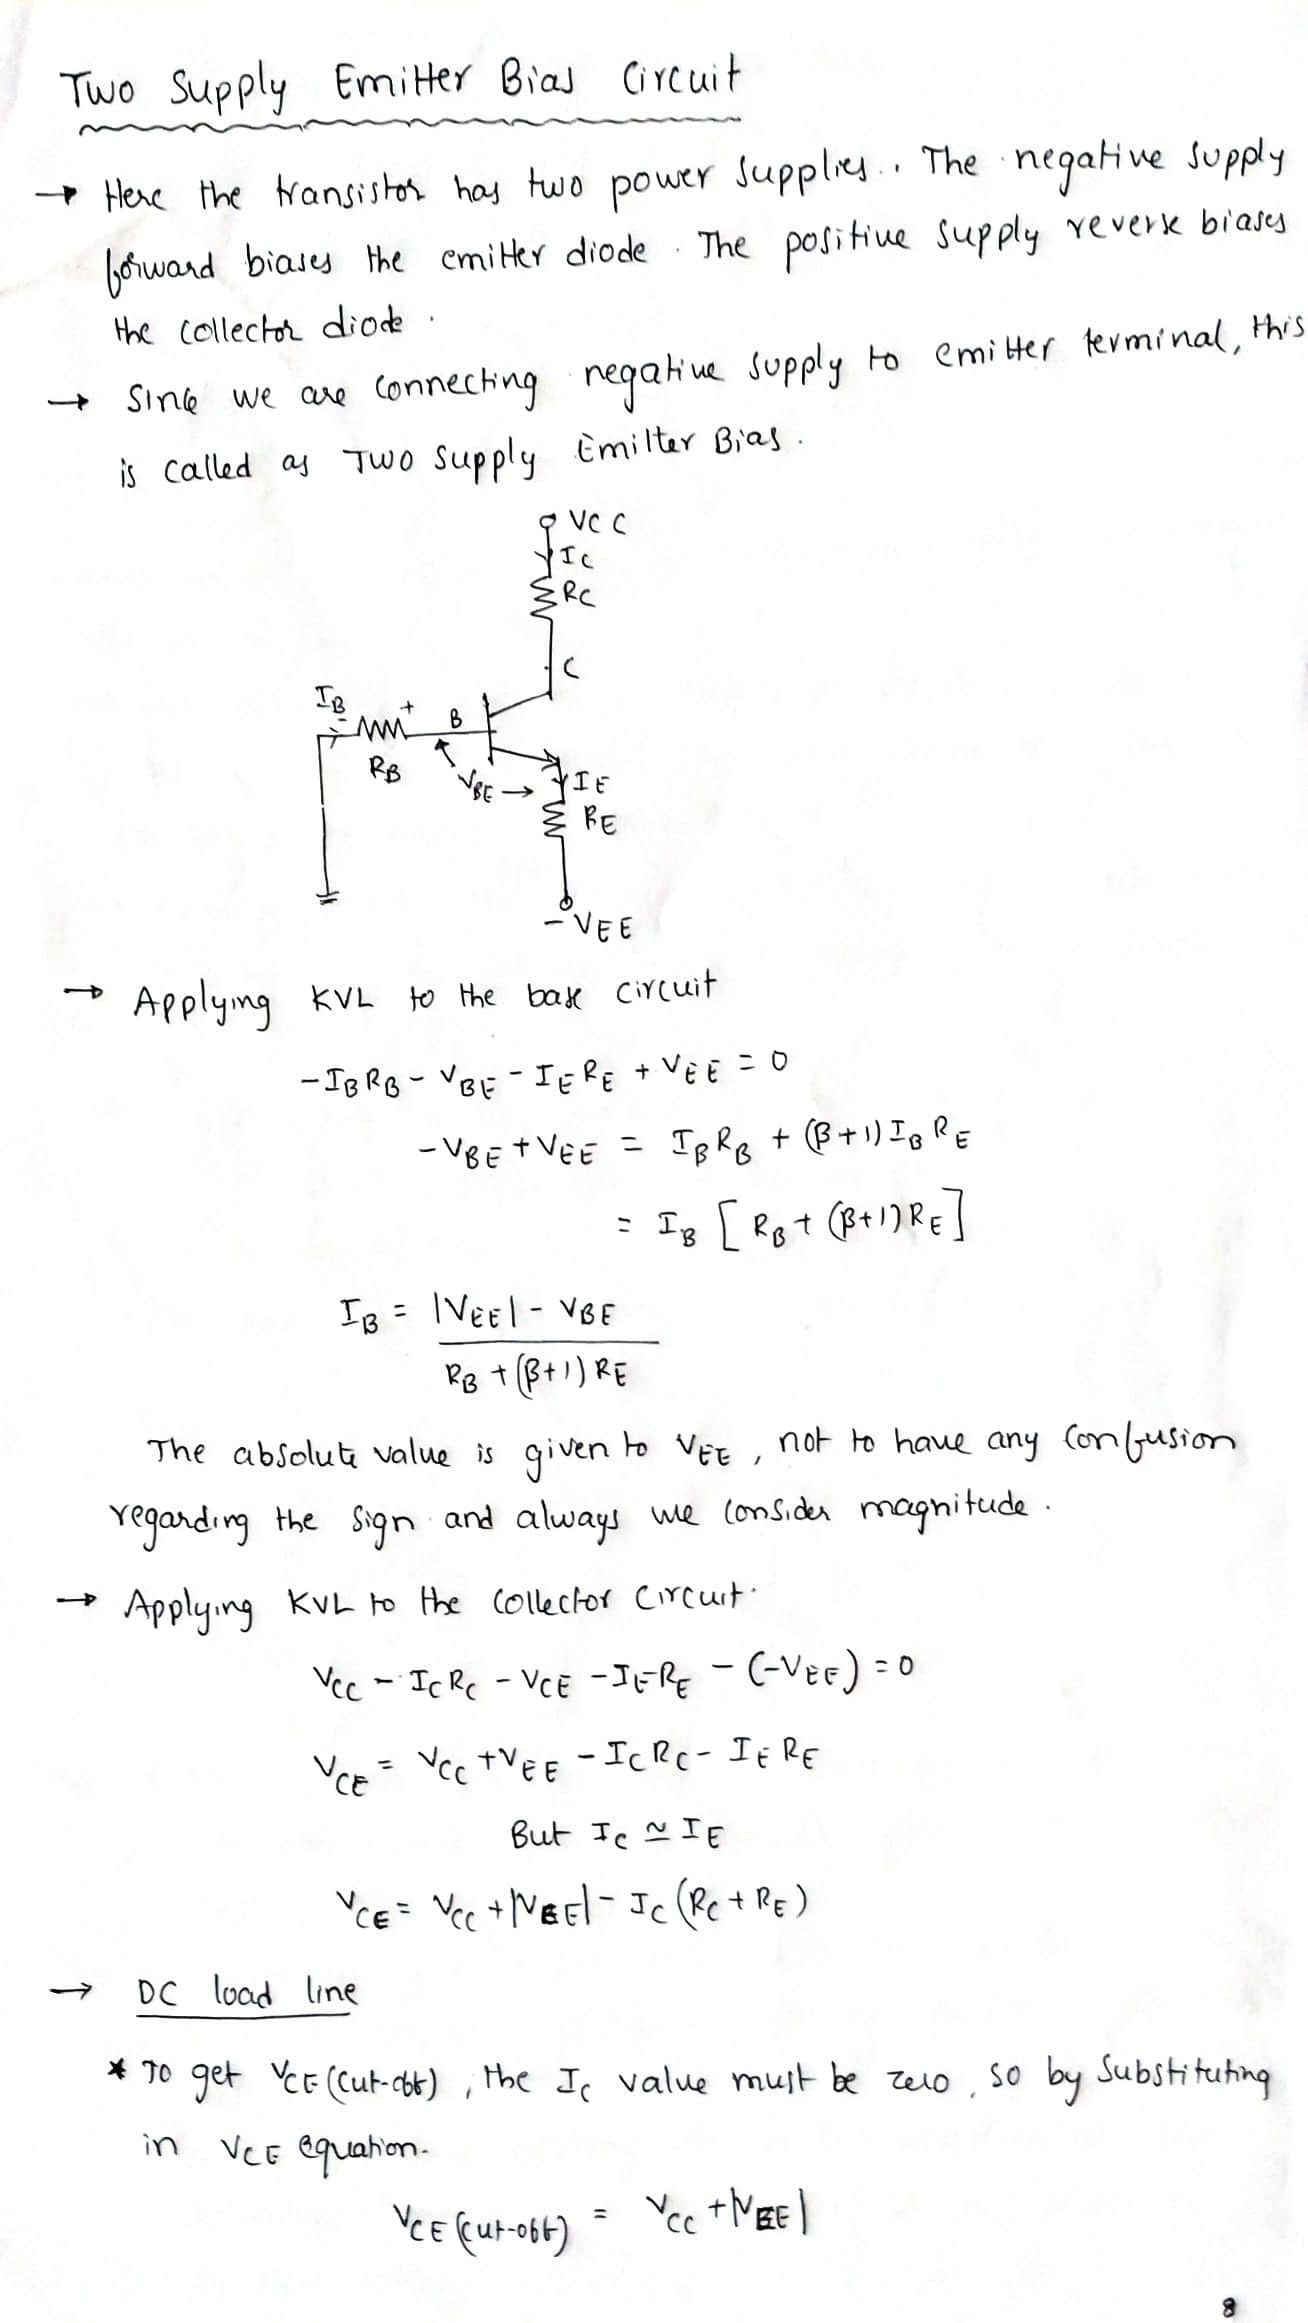 Two Supply Emitter Bias Circuit
→ Here the transistor has two power supplies. The negative supply
forward biases the emitter diode. The positive supply reverse biases
the collector diode.
→ Since we are connecting negative supply to emitter terminal, this
is called as Two Supply Emitter Bias.
VCC
IC
RC
C
IB
- +
B
RB
VBE →
IE
RE
-VEE
→ Applying KVL to the base circuit
-IBRB - VBE - IERE + VEE = 0
-VBE + VEE = IBRB + (β+1) IB RE
= IB [RB + (β+1) RE]
IB = |VEE| - VBE
RB + (β+1) RE
The absolute value is given to VEE, not to have any confusion
regarding the sign and always we consider magnitude.
→ Applying KVL to the collector circuit.
VCC - ICRC - VCE - IERE - (-VEE) = 0
VCE = VCC + VEE - ICRC - IERE
But IC ≃ IE
VCE = VCC + |VEE| - IC (RC + RE)
→ DC load line
* To get VCE (cut-off), the IC value must be zero, so by substituting
in VCE equation.
VCE (cut-off) = VCC + |VEE|
8